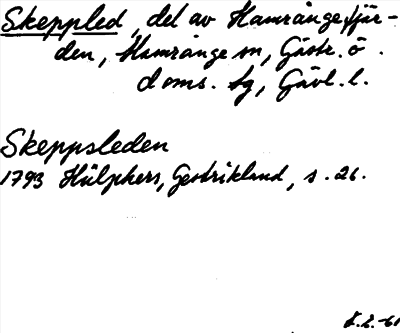 Skeppled, del av Hamrångefjär-
den, Hamrånge sn, Gästr. ö.
doms. tg, Gävl. l.
Skeppsleden
1793 Hülphers, Gestrikland, s. 26.